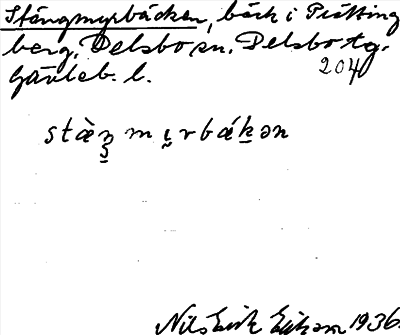 Stångmyrbäcken, bäck i Prästing
berg, Delsbo sn. Delsbo tg.
Gävleb. l.
204
stàn̠ mı̰rbáḵən
Nils Erik Eriksson 1936.